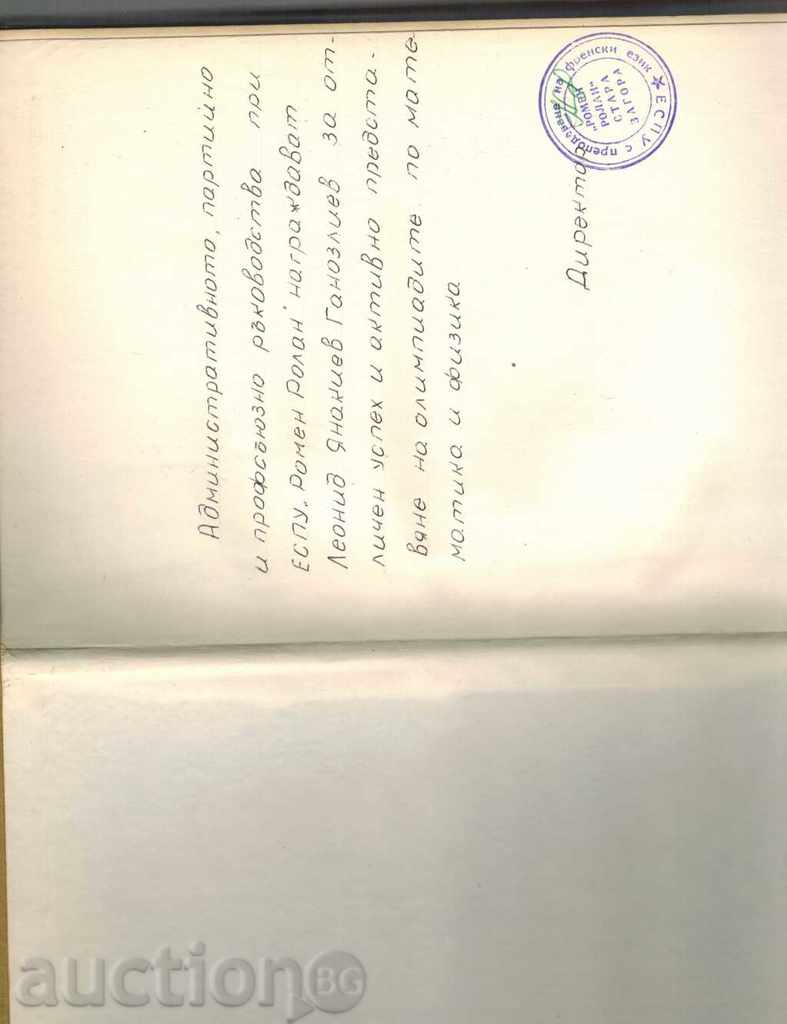 Административното, партийно
и профсъюзно ръководства при
ЕСПУ „Ромен Ролан" награждават
Леонид Янакиев Ганозлиев за от-
личен успех и активно предста-
вяне на олимпиадите по мате
матика и физика
Директор
★ ЕСПУ с преподаване на френски език
"РОМЕН
РОЛАН"
СТАРА
ЗАГОРА
auctionBG